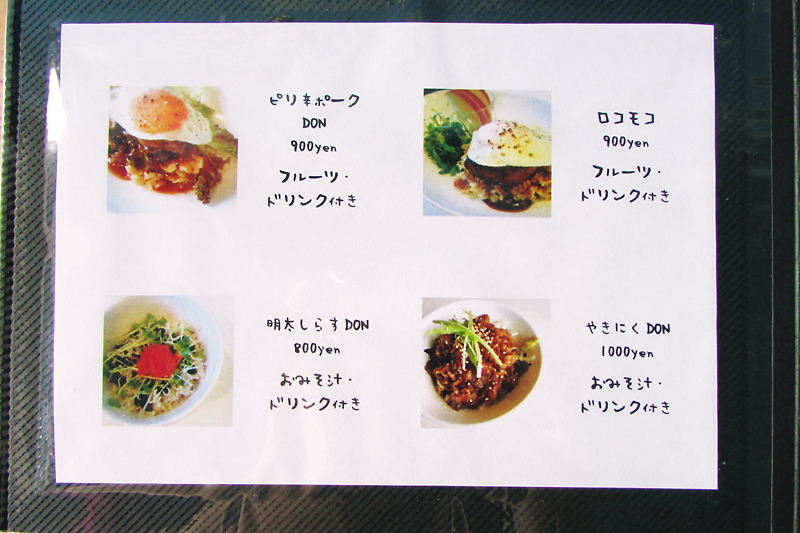 ピリ辛ポーク
DON
900yen
フルーツ・
ドリンク付き
ロコモコ
900yen
フルーツ・
ドリンク付き
明太しらすDON
800yen
おみそ汁・
ドリンク付き
やきにくDON
1000yen
おみそ汁・
ドリンク付き